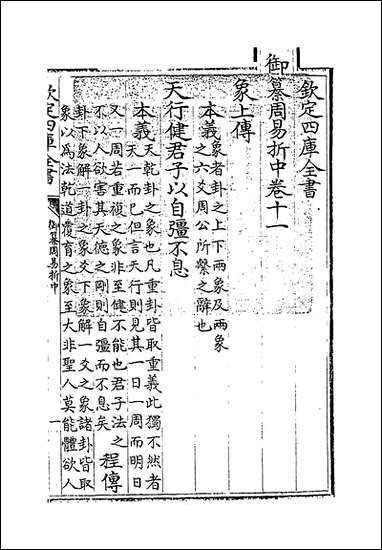 欽定四庫全書
御纂周易折中卷十一
象上傳
本義象者卦之上下兩象及兩象
之六爻周公所繫之辭也
天行健君子以自彊不息
本義天乾卦之象也凡重卦皆取重義此獨不然者
天一而已但言天行則見其一日一周而明日
又一周若重複之象非至健不能也君子法之
不以人欲害其天德之剛則自彊而不息矣 程傳
卦下象解一卦之象爻下象解一爻之象諸卦皆取
象以為法乾道覆育之象至大非聖人莫能體欲人
欽定四庫全書
御纂周易折中
一